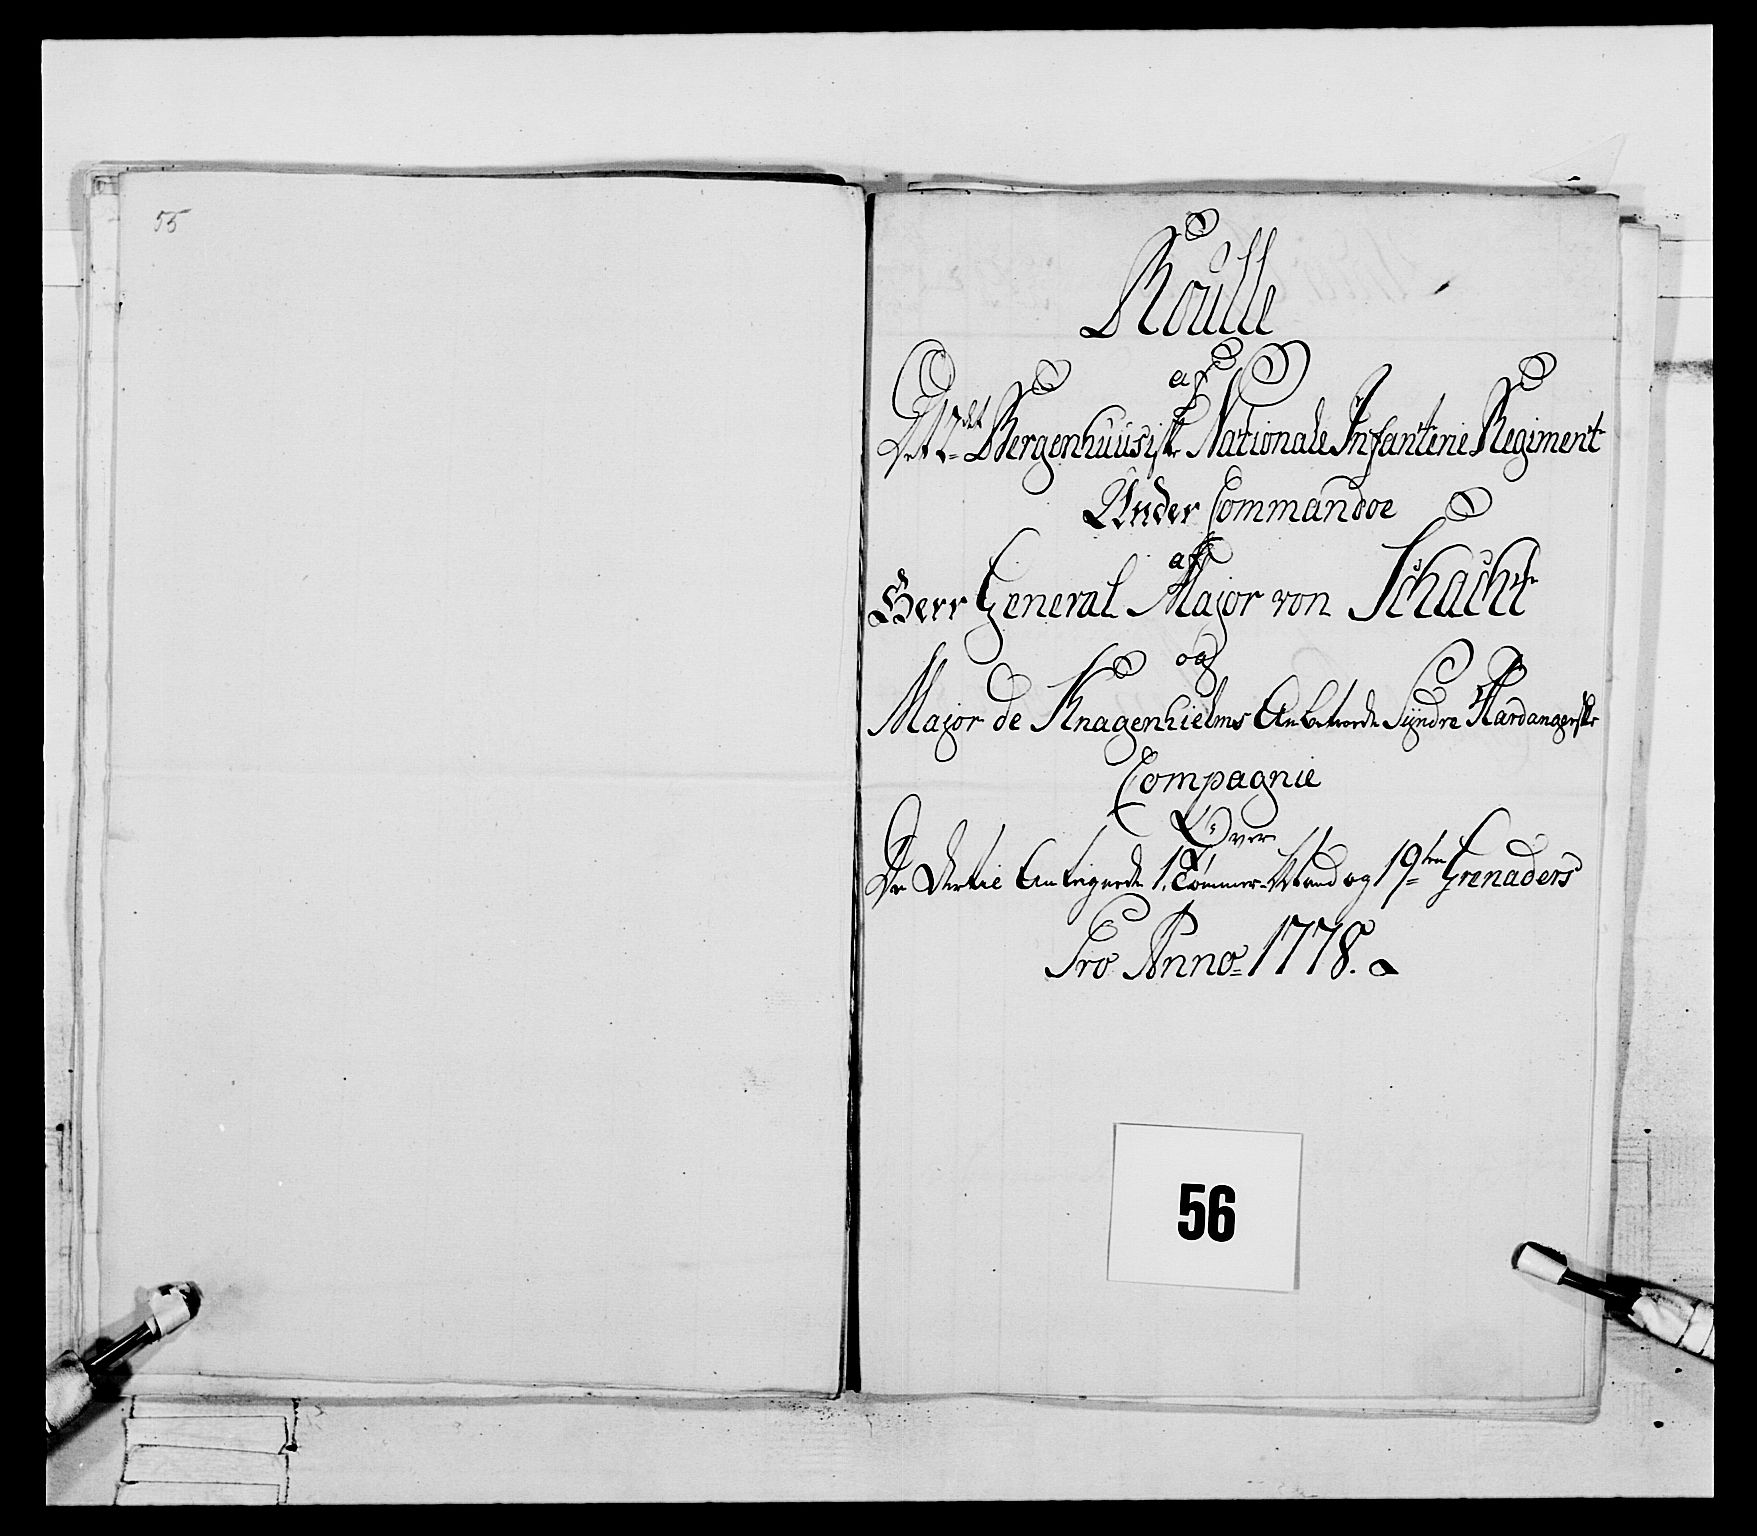 55
Roulle
af
Det 2det Bergenhuusiske Nationale Infanterie Regiment
Under Commandoe
af
Herr General Major von Schacht
og
Major de Knagenhielms Anbetroede Syndre Hardangerske
Compagnie
Over
De dertil Anteignede 1. Tømmer-Mand og 19ten Grenaders
Pro Anno 1778.
56